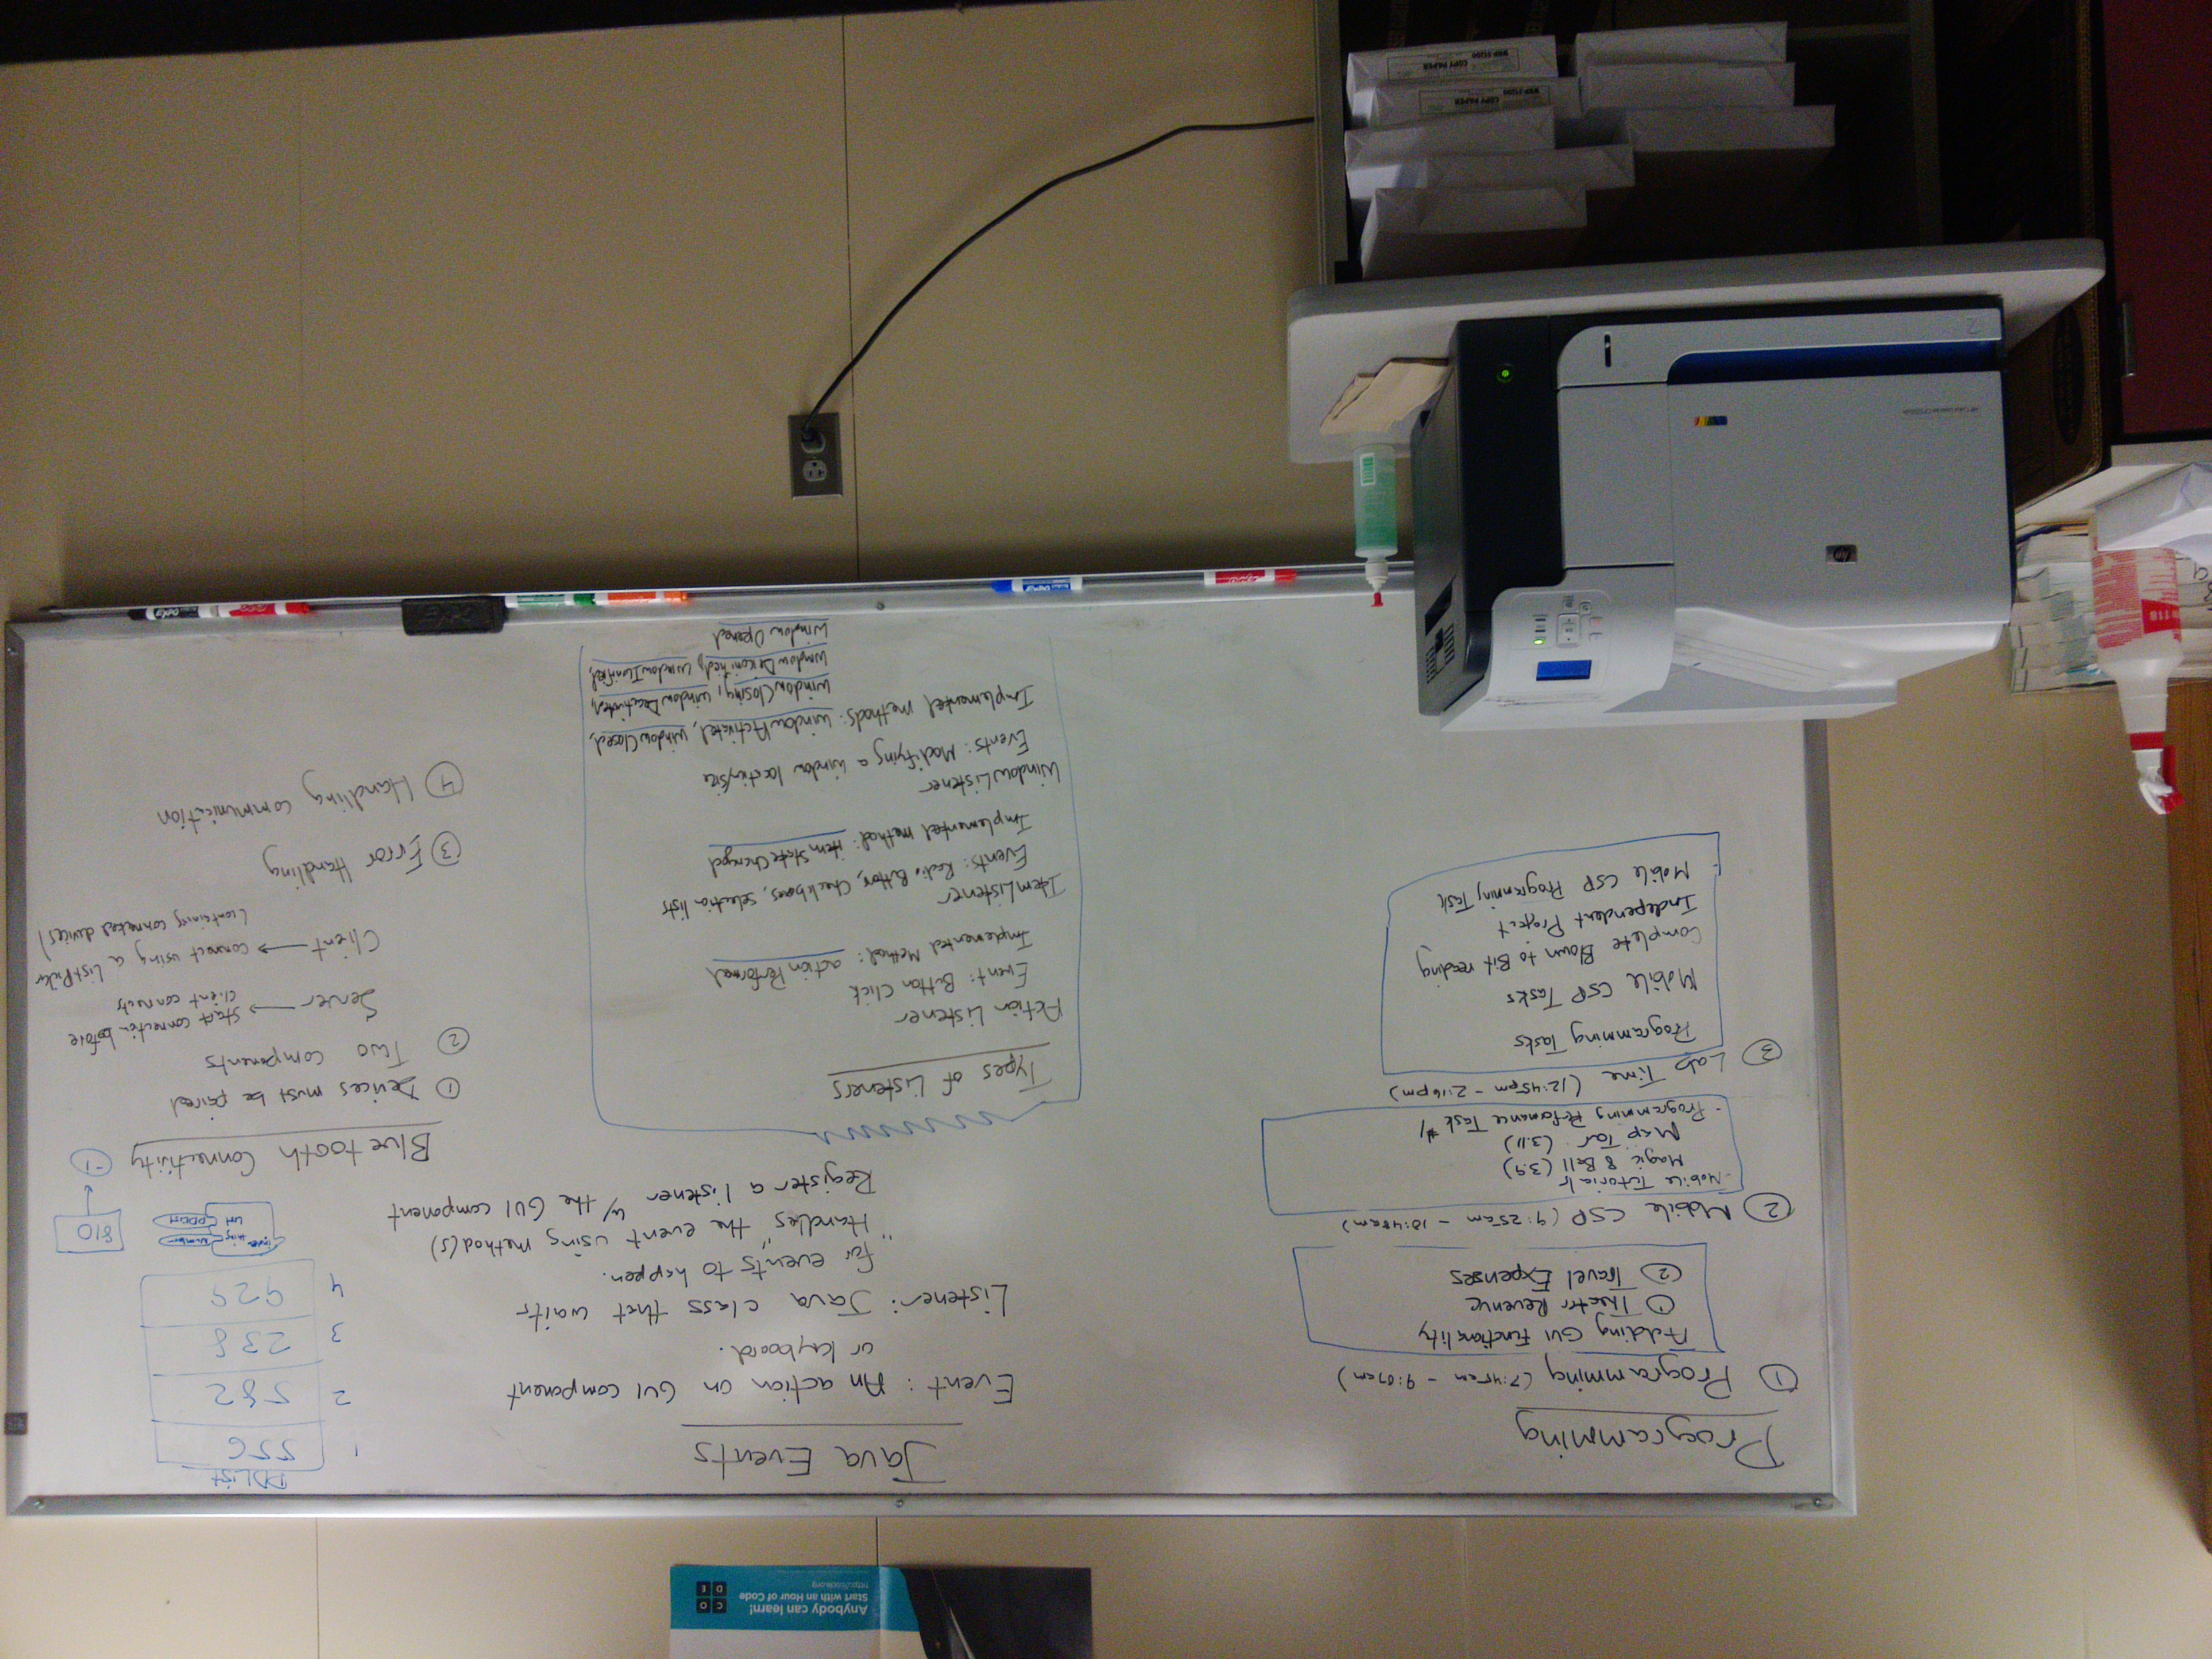 Programming
① Programming (7:45am - 9:07am)
Adding GUI Functionality
① Theater Revenue
② Travel Expenses
② Mobile CSP (9:25am - 10:48am)
- Mobile Tutorials
Magic 8 Ball (3.9)
Map Tour (3.11)
- Programming Performance Task #1
③ Lab Time (12:45pm - 2:16pm)
Programming Tasks
Mobile CSP Tasks
Complete Blown to Bit reading
Independent Project
Mobile CSP Programming Task
Java Events
Event: An action on GUI component
or keyboard.
Listener: Java class that waits
for events to happen.
"Handles" the event using method(s)
Register a listener w/ the GUI component
Types of Listeners
Action Listener
Event: Button Click
Implemented Method: action Performed
ItemListener
Events: Radio Button, Checkboxes, selection lists
Implemented method: item State Changed
WindowListener
Events: Modifying a window location/size
Implemented methods: windowActivated, windowClosed,
windowClosing, windowDeactivated,
windowDeiconified, windowIconified,
windowOpened
PDList
1 556
2 582
3 238
4 929
810
number
-1
Bluetooth Connectivity
① Devices must be paired
② Two components
Server → Start connection before
client connects
Client → connect using a ListPicker
(containing connected devices)
③ Error Handling
④ Handling communication
Anybody can learn!
Start with an Hour of Code
http://code.org
C O
D E
hp
COPY PAPER
COPY PAPER
EXPO